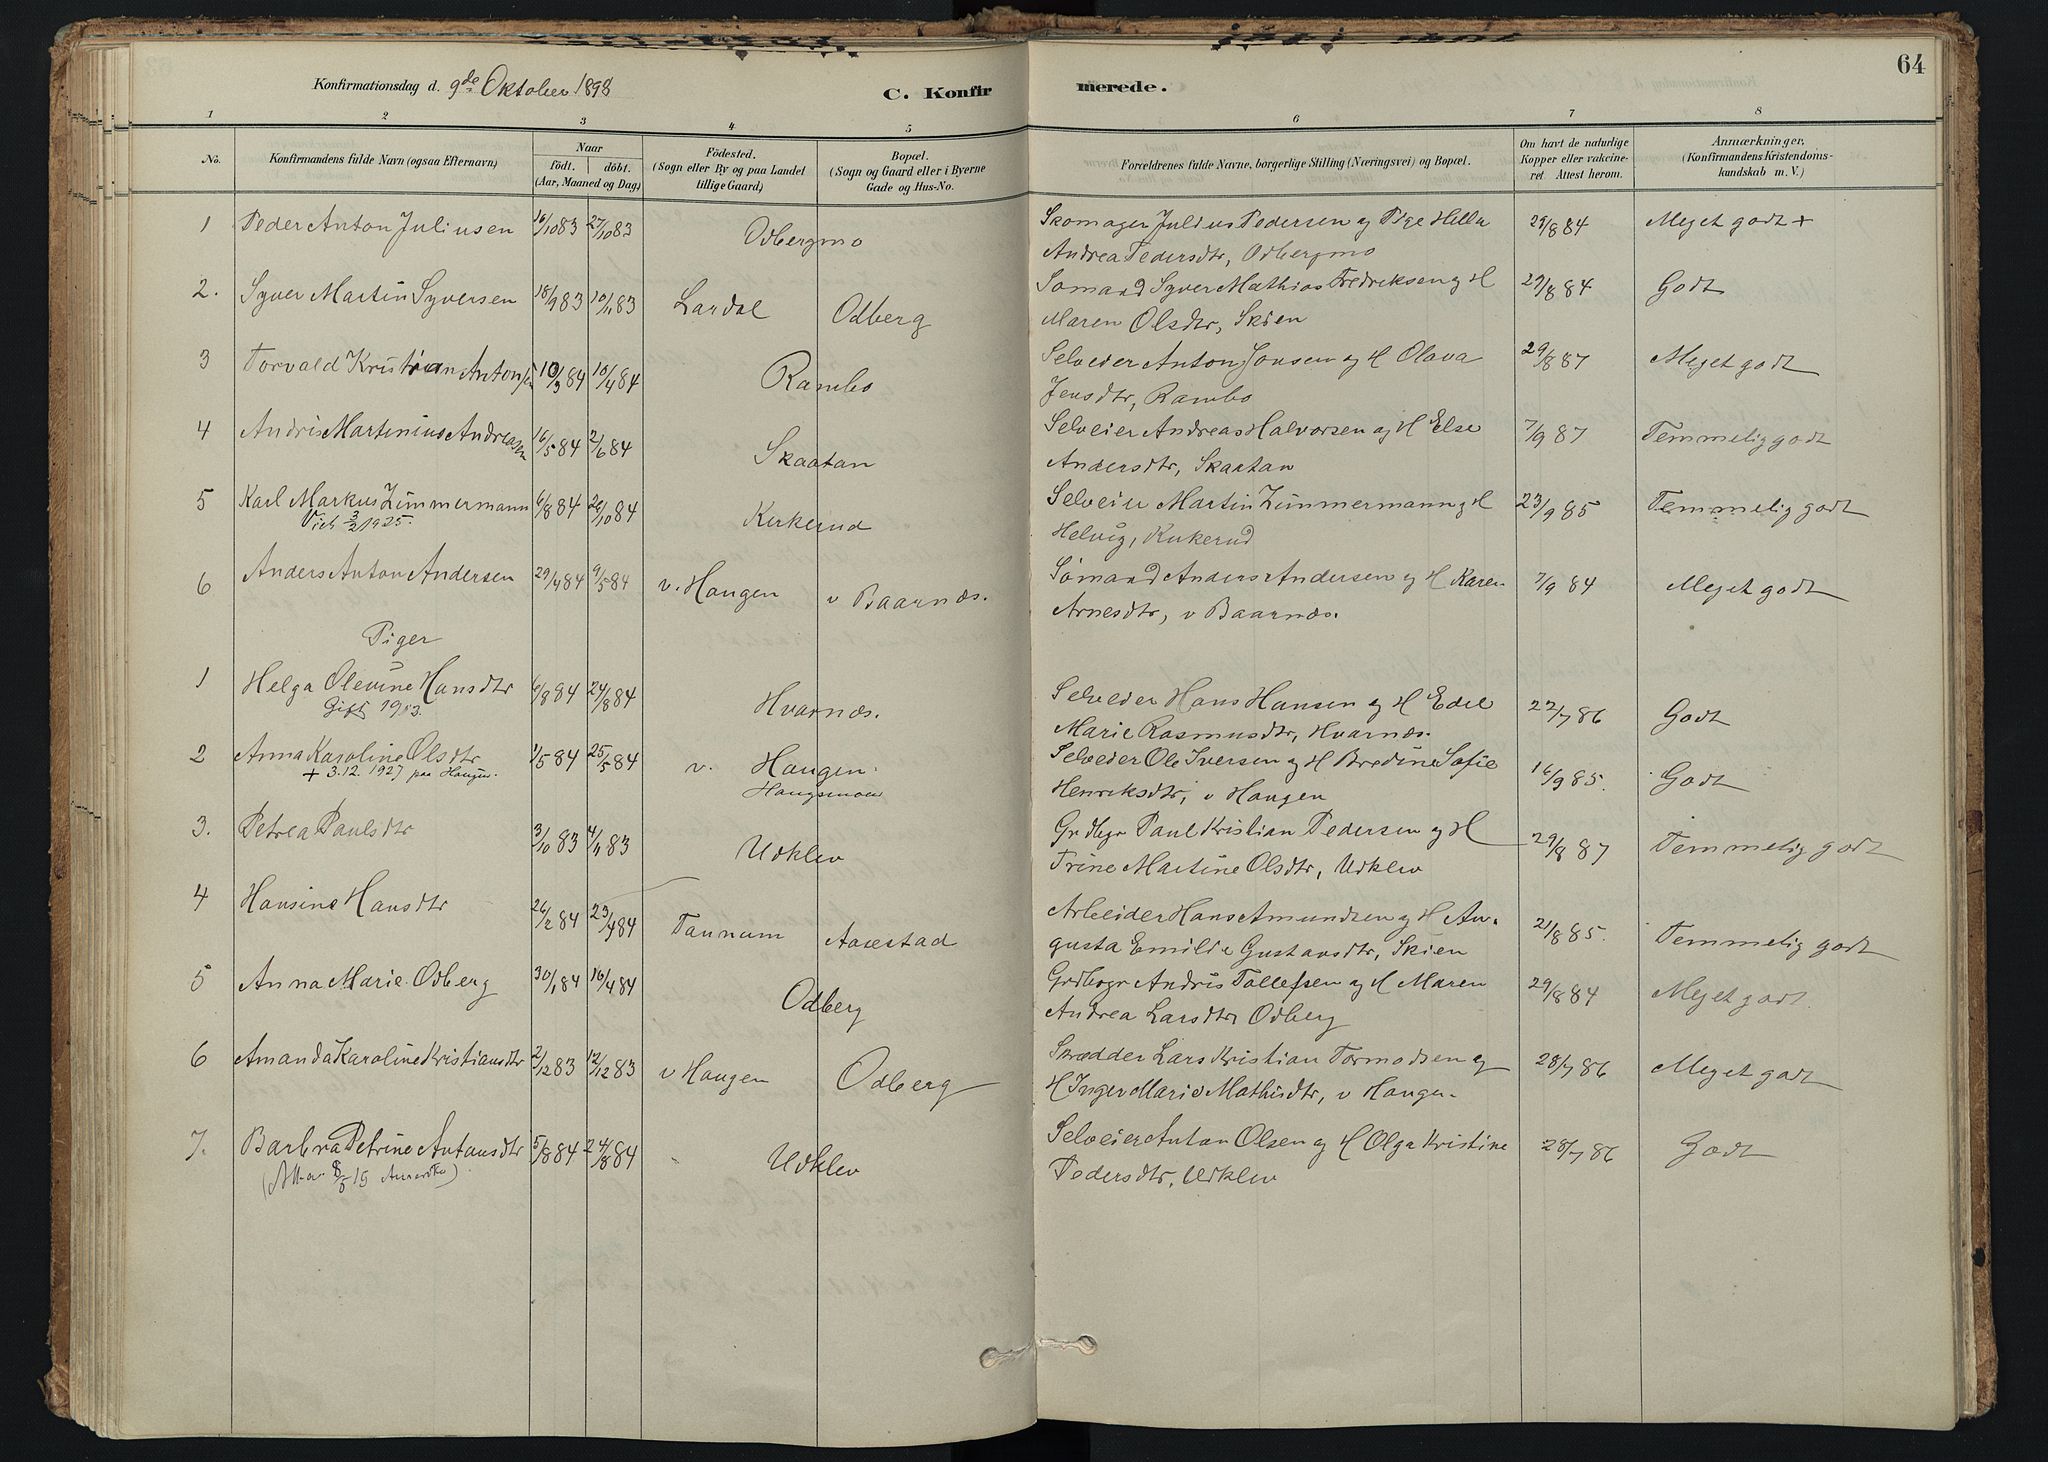 64
Konfirmationsdag d. 9de Oktober 1898
C. Konfirmerede.
1 2 3 4 5 6 7 8
No. Konfirmandens fulde Navn (ogsaa Efternavn). Naar födt. döbt. (Aar, Maaned og Dag) Födested. (Sogn eller By og paa Landet tillige Gaard) Bopæl. (Sogn og Gaard eller i Byerne Gade og Hus-No. Forældrenes fulde Navne, borgerlige Stilling (Næringsvei) og Bopæl. Om havt de naturlige Kopper eller vakcineret. Attest herom. Anmærkninger. (Konfirmandens Kristendomskundskab m. V.)
1 Peder Anton Juliusen 16/10 83 27/10 83 Odbergmo Skomager Julius Pedersen og Pige Hella 29/8 84 Meget godt +
Andrea Pedersdtr, Odbergmo
2. Syver Martin Syversen 18/9 83 10/11 83 Lardal Odberg Sømand Syver Mathias Fredriksen og H 29/8 84 Godt
Maren Olsdtr, Skien
3 Torvald Kristian Antonsen 10/3 84 10/4 84 Rambo Selveier Anton Jonsen og H Olava 29/8 87 Meget godt
Jensdtr, Rambo
4 Andris Martinius Andreasen 16/5 84 2/6 84 Skaatan Selveier Andreas Halvorsen og H Else 7/9 87 Temmelig godt
Andersdtr, Skaatan
5 Karl Markus Zimmermann 6/8 84 26/10 84 Kirkerud Selveier Martin Zimmermann og H 23/9 85 Temmelig godt
Viet 3/2 1925.
Helvig, Kirkerud
6 Anders Anton Andersen 29/4 84 9/5 84 v. Haugen v Baarnæs. Sømand Anders Andersen og H Karen 7/9 84 Meget godt
Arnesdtr, v Baarnæs.
Piger
1 Helga Olevine Hansdtr 6/8 84 24/8 84 Hvarnæs. Selveier Hans Hansen og H Edel 22/7 86 Godt
Gift 1913.
Marie Rasmusdtr, Hvarnæs.
2 Anna Karoline Olsdtr 1/5 84 25/5 84 v. Haugen. Selveier Ole Iversen og H Bredine Sofie 16/9 85. Godt
+ 3.12.1927 paa Haugen. Haugsmoen
Henriksdtr, v Haugen
3. Petrea Paulsdtr 3/10 83 4/11 83 Udklev Grdbgr Paul Kristian Pedersen og H 29/8 87 Temmelig godt
Trine Martine Olsdtr, Udklev
4 Hansine Hansdtr 26/2 84 23/4 84 Tannum Aarestad Arbeider Hans Amundsen og H Au- 21/8 85. Temmelig godt
gusta Emilie Gustavsdtr, Skien
5 Anna Marie Odberg 30/1 84 16/4 84 Odberg Grdbgr Andris Tollefsen og H Maren 29/8 84 Meget godt.
Andrea Larsdtr Odberg
6 Amanda Karoline Kristiansdtr 2/12 83 12/12 83 v Haugen Odberg Skrædder Lars Kristian Tormodsen og 28/7 86 Meget godt
H Inger Marie Mathisdtr, v Haugen.
7. Barbra Petrine Antonsdtr 5/8 84 24/8 84 Udklev Selveier Anton Olsen og H Olga Kristine 28/7 86 Godt
(Att 8/5 15 Amerika)
Pedersdtr, Udklev